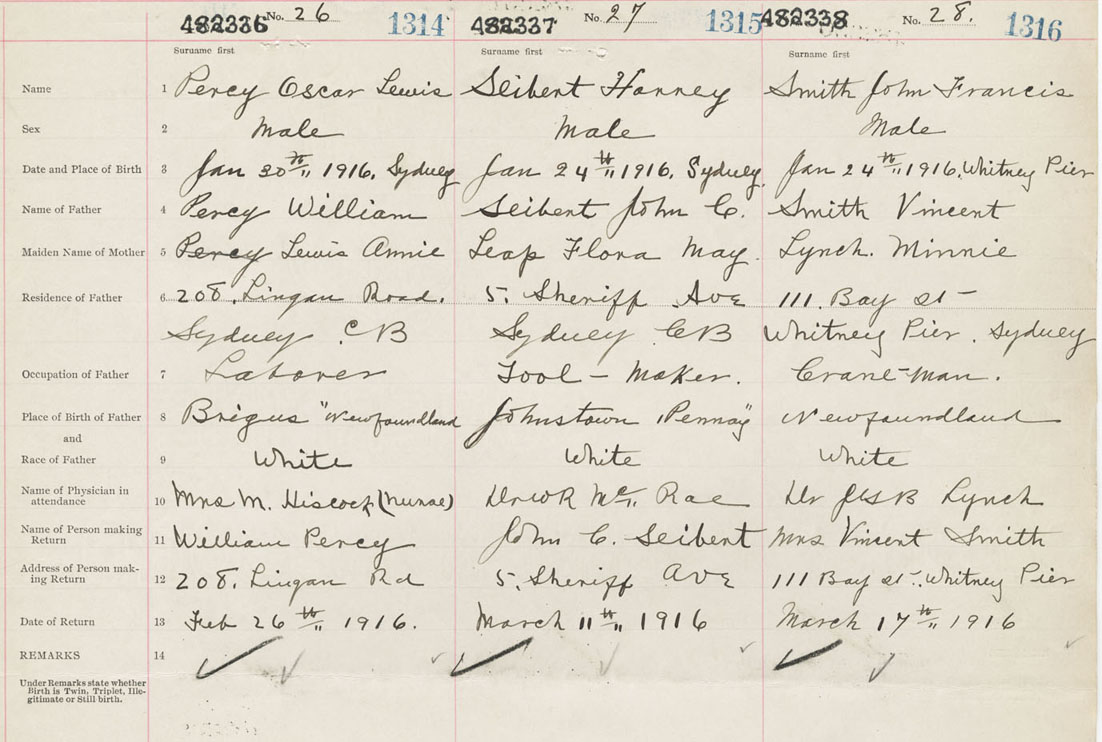 482336 No. 26 1314 482337 No. 27 1315 482338 No. 28. 1316
Surname first Surname first Surname first
Name 1 Percy Oscar Lewis Seibert Harvey Smith John Francis
Sex 2 Male Male Male
Date and Place of Birth 3 Jan 30th 1916, Sydney Jan 24th 1916, Sydney Jan 24th 1916, Whitney Pier
Name of Father 4 Percy William Seibert John C. Smith Vincent
Maiden Name of Mother 5 Percy Lewis Annie Leap Flora May. Lynch. Minnie
Residence of Father 6 208, Lingan Road. 5, Sheriff Ave 111, Bay st —
Sydney CB Sydney CB Whitney Pier, Sydney
Occupation of Father 7 Laborer Tool – Maker. Crane-man.
Place of Birth of Father 8 Brigus "Newfoundland Johnstown "Penna" Newfoundland
and
Race of Father 9 White White White
Name of Physician in
attendance 10 Mrs M. Hiscock (nurse) Dr W R Mc Rae Dr J G B Lynch
Name of Person making
Return 11 William Percy John C. Seibert Mrs Vincent Smith
Address of Person mak-
ing Return 12 208, Lingan Rd 5, Sheriff Ave 111 Bay st, Whitney Pier
Date of Return 13 Feb 26th 1916. March 11th 1916 March 17th 1916
REMARKS 14
Under Remarks state whether
Birth is Twin, Triplet, Ille-
gitimate or Still birth.